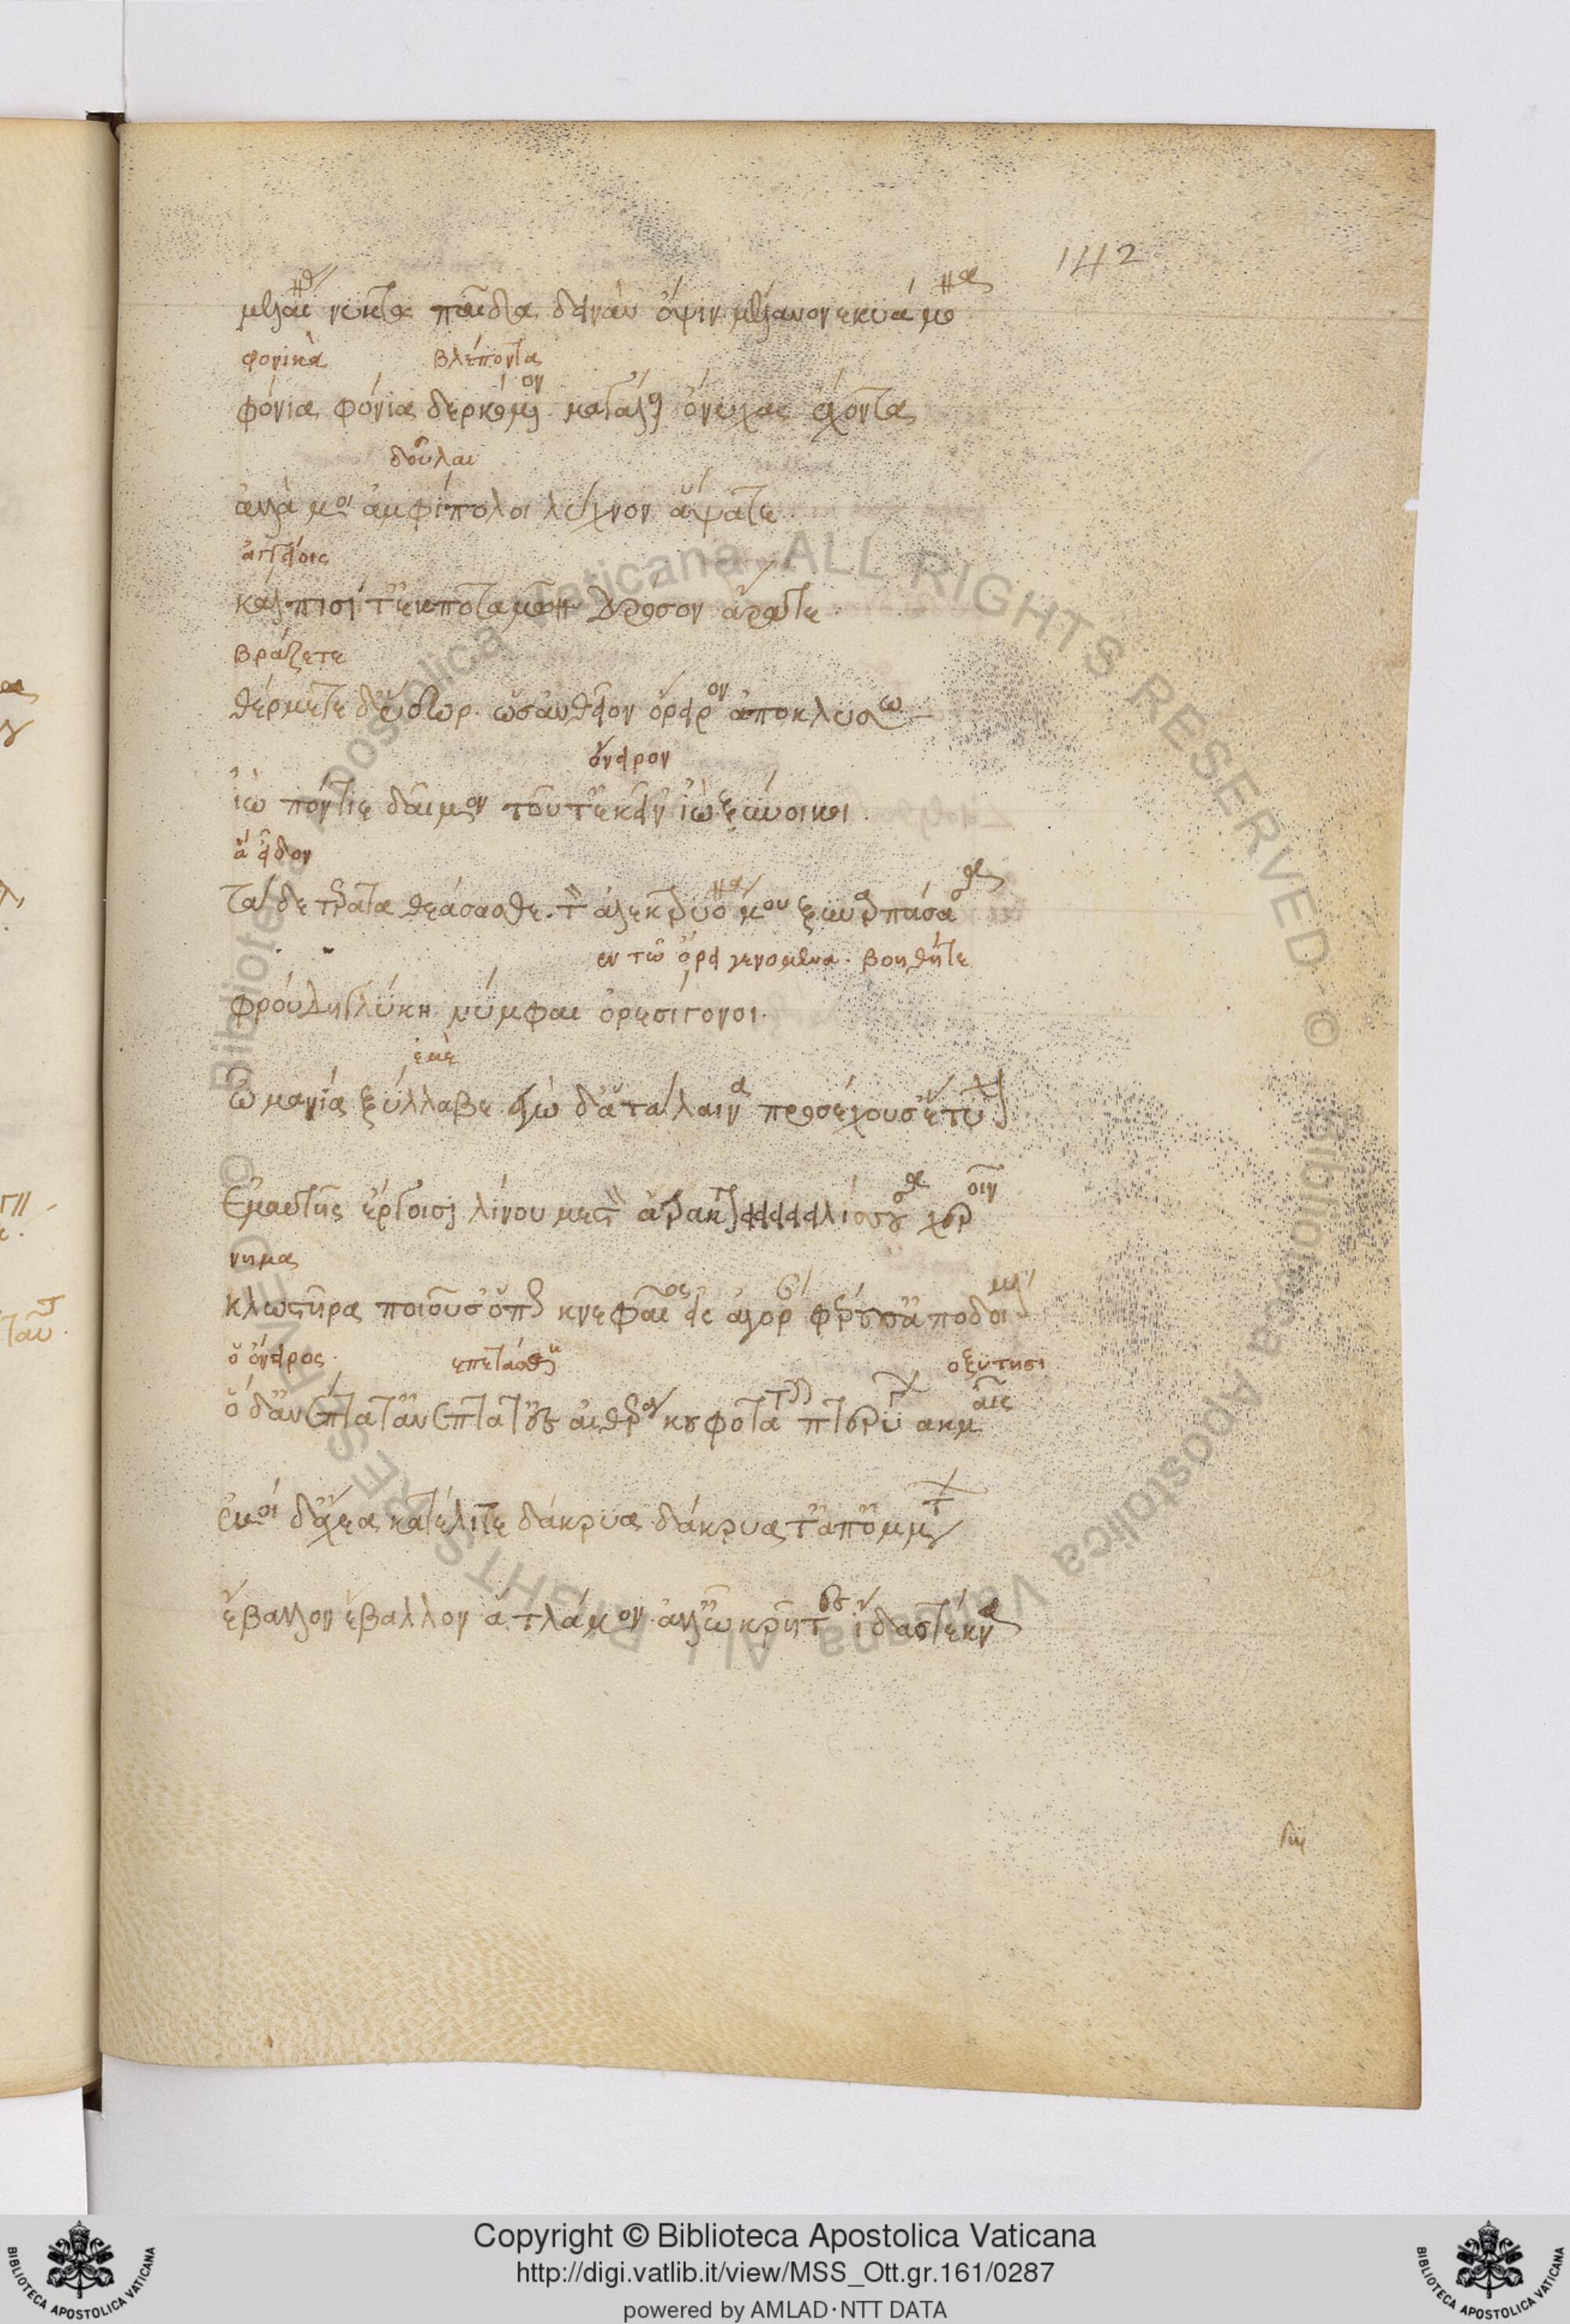 142
μελαίνας νυκτὸς παῖδα δεινὰν ὄψιν μελανονεκυείμονα
φονικὰ βλέποντα
φόνια φόνια δερκόμενον. μεγάλους ὄνυχας ἔχοντα
δοῦλαι
ἀλλά μοι ἀμφίπολοι λύχνον ἅψατε
ἀγγείοις
κάλπισί τ' ἐκ ποταμῶν δρόσον ἄρατε
βράζετε
θέρμετε δ' ὕδωρ. ὡς ἂν θεῖον ὄνειρον ἀποκλύσω
ὄνειρον
ἰὼ πόντιε δαῖμον τοῦτ' ἐκεῖν' ἰὼ ξύνοικοι
ἃ εἶδον
τάδε τέρατα θεάσασθε. τὸν ἀλεκτρυόνα μου ξυναρπάσασα
ἐν τῷ ὄρει γενομεναι. βοηθεῖτε
φρούδη Γλύκη νύμφαι ὀρεσίγονοι.
ἐμὲ
ὦ μανία ξύλλαβε ἐγὼ δ' ἁ τάλαινα προσέχουσ' ἔτυχον
ἐμαυτῆς ἔργοισι λίνου μεστὸν ἄτρακτον εἰειειειλίσσουσα χεροῖν
νημα
κλωστῆρα ποιοῦσ' ὅπως κνεφαῖος εἰς ἀγορὰν φέρουσ' ἀποδοίμαν
ὁ ὄνειρος. ἐπετάσθη ὀξύτησι
ὁ δ' ἀνέπτατ' ἀνέπτατ' ἐς αἰθέρα κουφοτάταις πτερύγων ἀκμαῖς
ἐμοὶ δ' ἄχεα κατέλιπε δάκρυα δάκρυα τ' ἀπ' ὀμμάτων
ἔβαλλον ἔβαλλον ἁ τλάμων. ἀλλ' ὦ κρῆτες ἴδας τέκνα
Copyright © Biblioteca Apostolica Vaticana
http://digi.vatlib.it/view/MSS_Ott.gr.161/0287
powered by AMLAD·NTT DATA